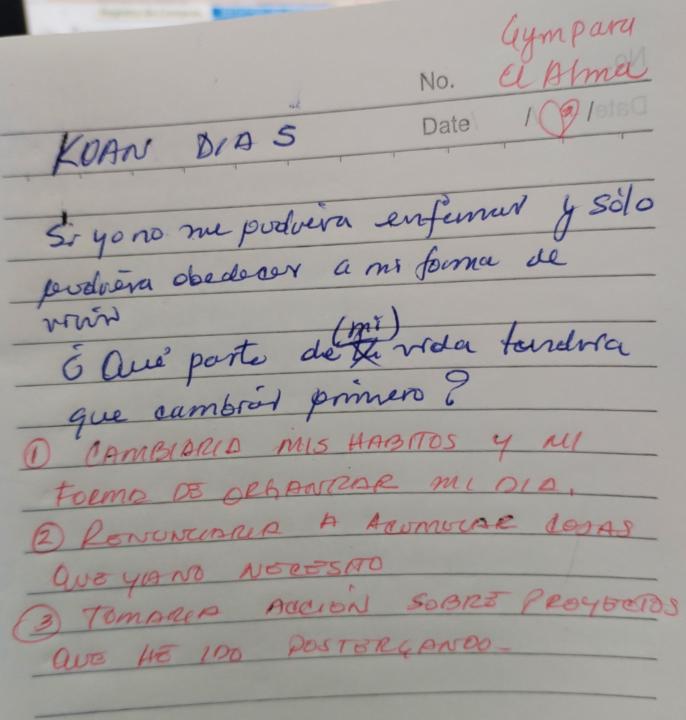 Gym para
el Alma
No.
Date / /
KOAN DIA 5
Si yo no me pudiera enfermar y sólo
pudiera obedecer a mi forma de
vivir
¿Qué parte de (mi) vida tendría
que cambiar primero?
① CAMBIARIA MIS HABITOS Y MI
FORMA DE ORGANIZAR MI DIA.
② RENUNCIARIA A ACUMULAR COSAS
QUE YA NO NECESITO
③ TOMARIA ACCIÓN SOBRE PROYECTOS
QUE HE IDO POSTERGANDO-